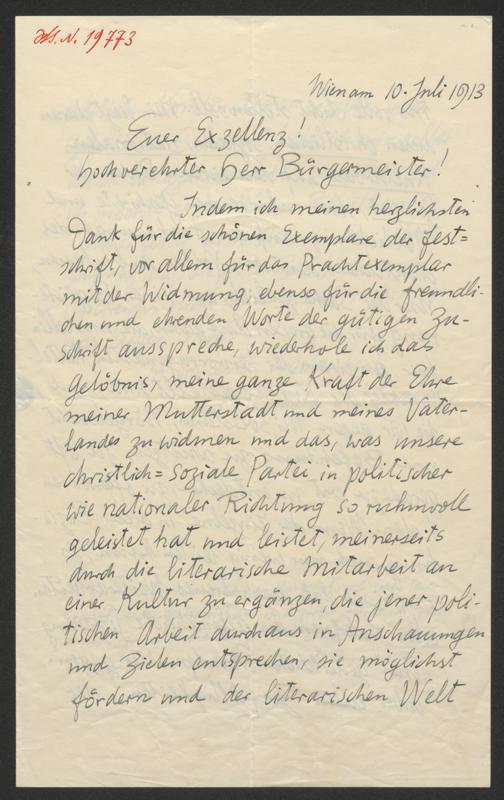 Hs. N. 19773
Wien am 10. Juli 1913
Euer Exzellenz!
hochverehrter Herr Bürgermeister!
Indem ich meinen herzlichsten
Dank für die schönen Exemplare der Fest=
schrift, vor allem für das Prachtexemplar
mit der Widmung, ebenso für die freundli-
chen und ehrenden Worte der gütigen Zu-
schrift ausspreche, wiederhole ich das
Gelöbnis, meine ganze Kraft der Ehre
meiner Mutterstadt und meines Vater-
landes zu widmen und das, was unsere
christlich=soziale Partei in politischer
wie nationaler Richtung so ruhmvoll
geleistet hat und leistet, meinerseits
durch die literarische Mitarbeit an
einer Kultur zu ergänzen, die jener poli-
tischen Arbeit durchaus in Anschauungen
und Zielen entsprechen, sie möglichst
fördern und der literarischen Welt